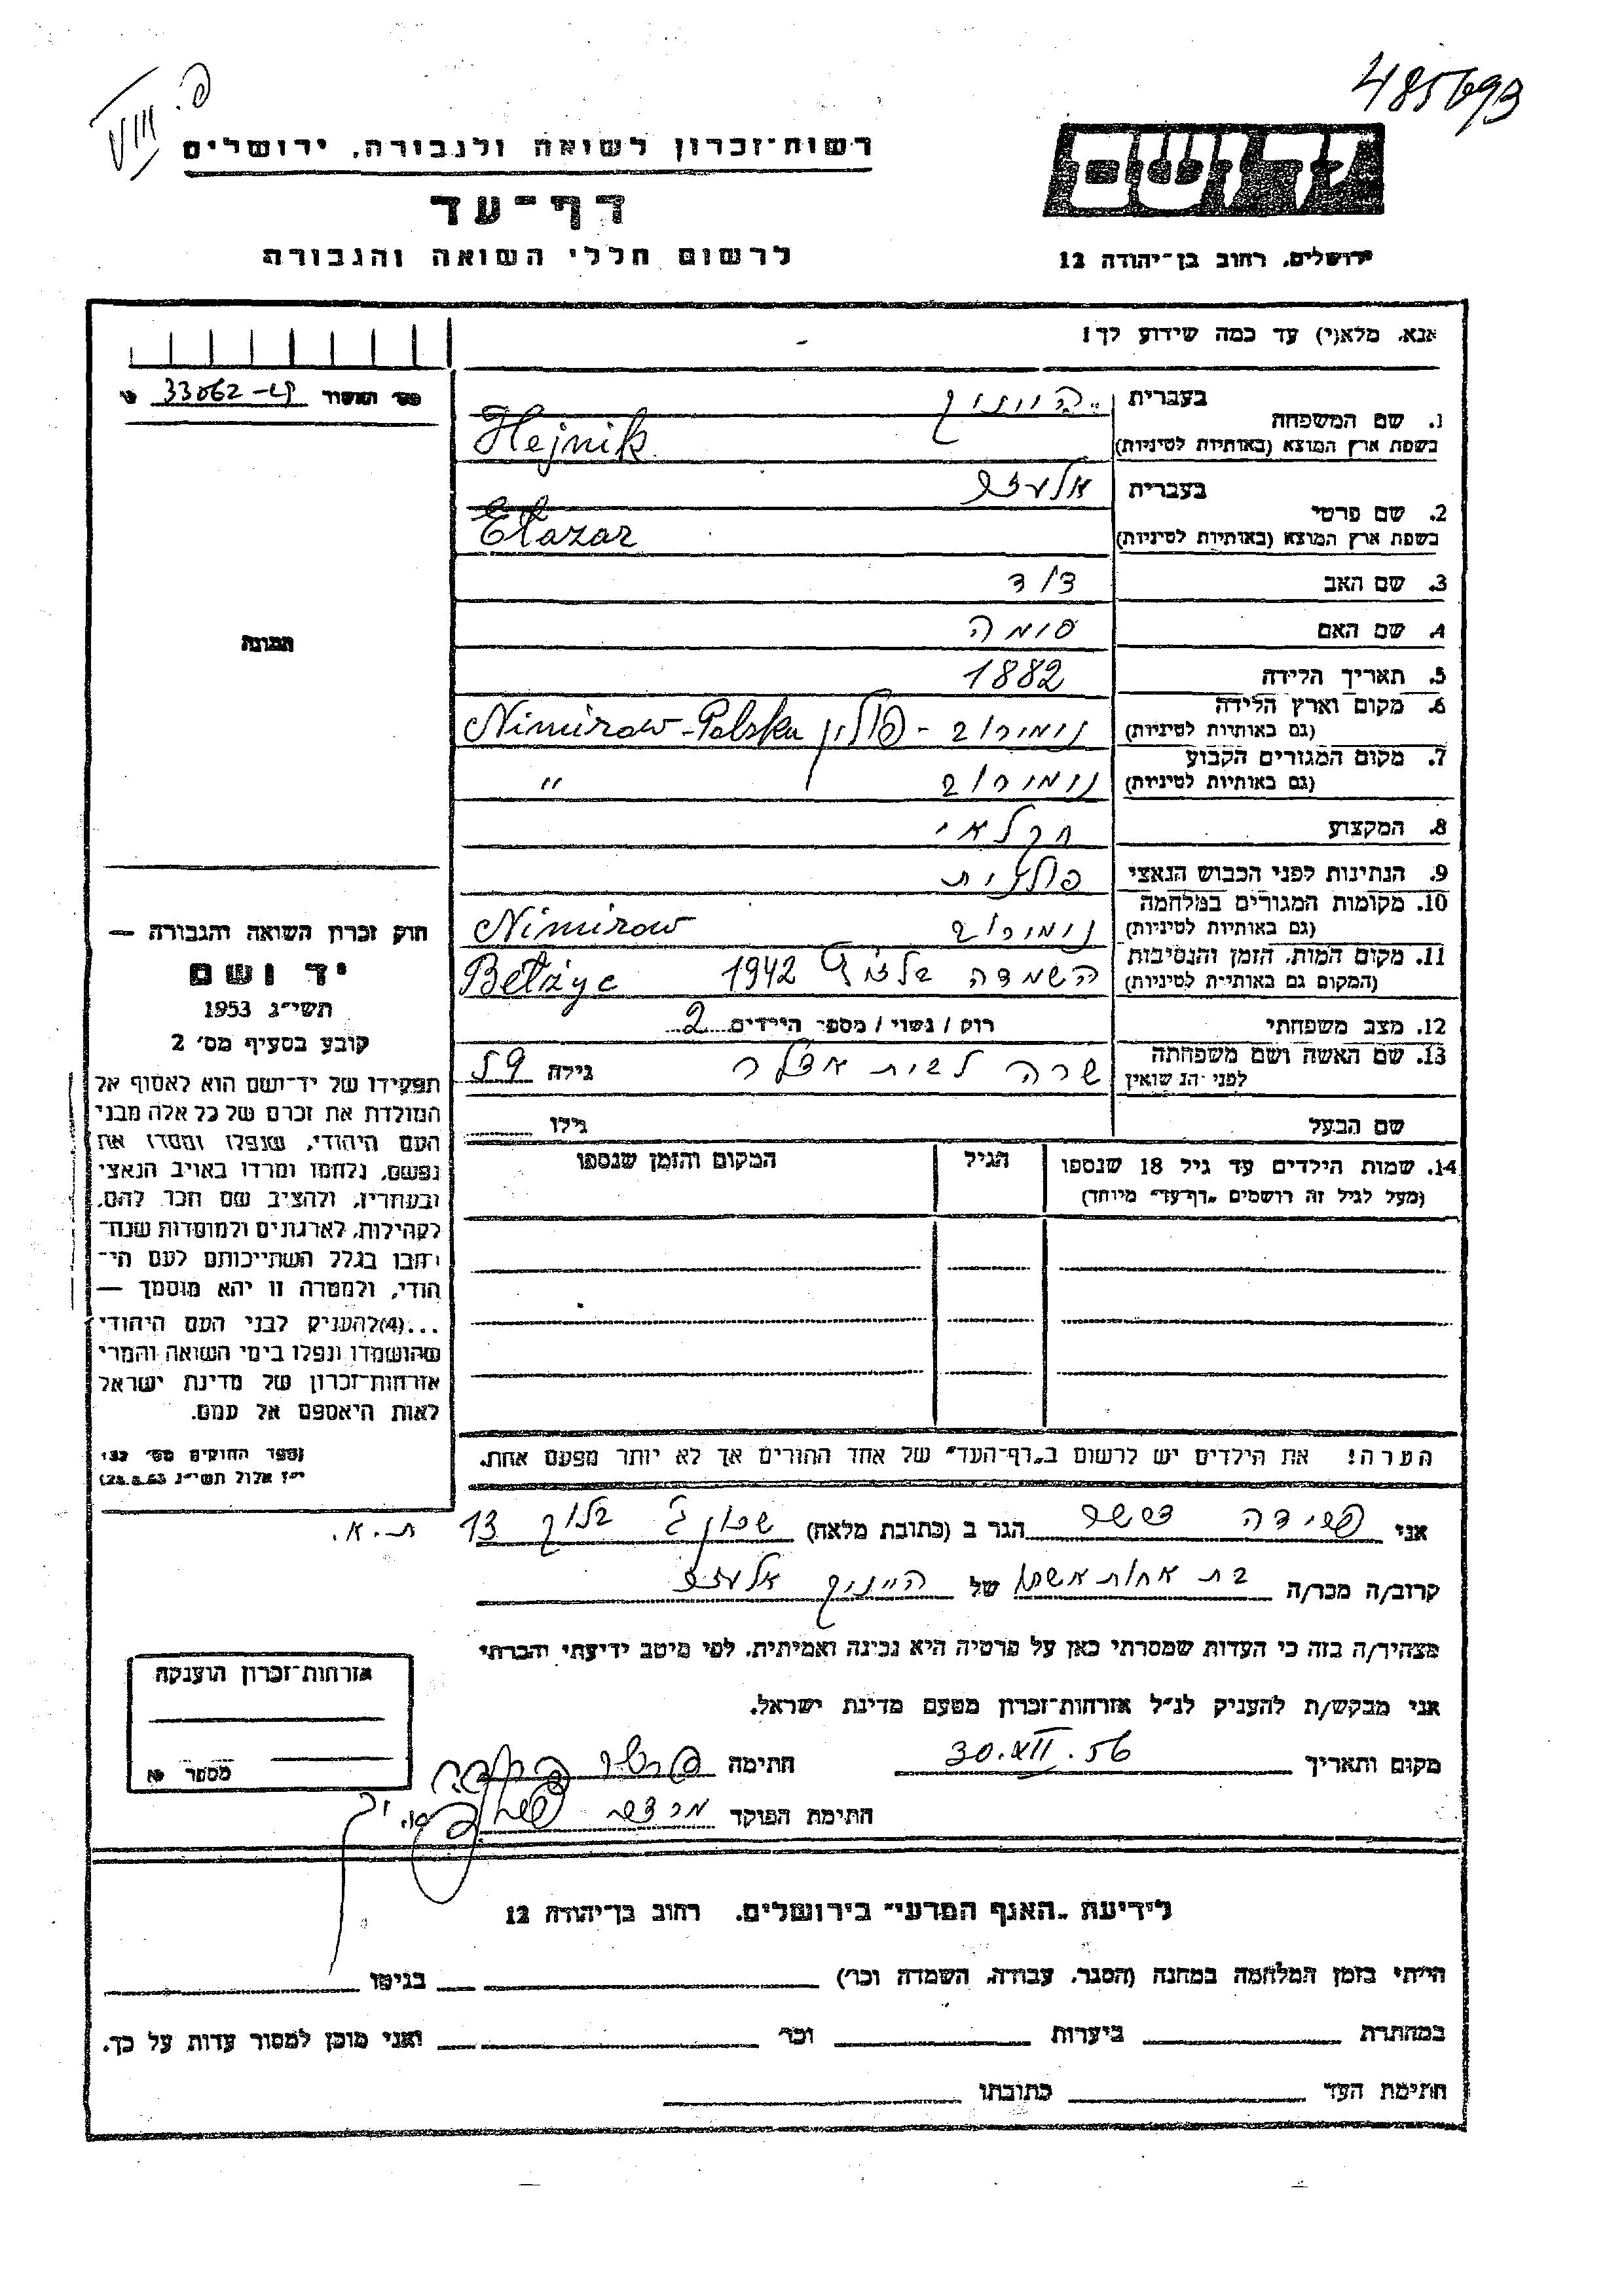 485693
פ. VIII
רשות־זכרון לשואה ולגבורה, ירושלים
דף־עד
לרשום חללי השואה והגבורה
יד ושם
ירושלים, רחוב בן־יהודה 12
אנא, מלא(י) עד כמה שידוע לך!
33062
1. שם המשפחה בעברית היניק
בשפת ארץ המוצא (באותיות לטיניות) Hejnik
2. שם פרטי בעברית אלעזר
בשפת ארץ המוצא (באותיות לטיניות) Elazar
3. שם האב דוד
4. שם האם
5. תאריך הלידה 1882
6. מקום וארץ הלידה נימירוב - פולין Nimirow-Polska
(גם באותיות לטיניות)
7. מקום המגורים הקבוע נימירוב "
(גם באותיות לטיניות)
8. המקצוע חקלאי
9. הנתינות לפני הכבוש הנאצי פולנית
10. מקומות המגורים במלחמה נימירוב Nimirow
(גם באותיות לטיניות)
11. מקום המות, הזמן והנסיבות השמדה 1942 Bełżyc
(המקום גם באותיות לטיניות)
12. מצב משפחתי רוק / נשוי / מספר הילדים 2
13. שם האשה ושם משפחתה שרה לבית גילה 59
לפני הנשואין
שם הבעל גילו
14. שמות הילדים עד גיל 18 שנספו הגיל המקום והזמן שנספו
(מעל לגיל זה רושמים "דף־עד" מיוחד)
הערה! את הילדים יש לרשום ב"דף־העד" של אחד ההורים אך לא יותר מפעם אחת.
תמונה
חוק זכרון השואה והגבורה —
יד ושם
תשי"ג 1953
קובע בסעיף מס' 2
תפקידו של יד־ושם הוא לאסוף אל
המולדת את זכרם של כל אלה מבני
העם היהודי, שנפלו ומסרו את
נפשם, נלחמו ומרדו באויב הנאצי
ובעוזריו, ולהציב שם וזכר להם,
לקהילות, לארגונים ולמוסדות שנח־
רבו בגלל השתייכותם לעם הי־
הודי, ולמטרה זו יהא מוסמך —
...(4) להעניק לבני העם היהודי
שהושמדו ונפלו בימי השואה והמרי
אזרחות־זכרון של מדינת ישראל
לאות היאספם אל עמם.
(ספר החוקים מס' 132
י"ז אלול תשי"ג 28.8.53)
אני הגר ב (כתובת מלאה) שכון ג' בלוק 13 ת.א.
קרוב/ה מכר/ה בת אחות אשתו של היניק אלעזר
מצהיר/ה בזה כי העדות שמסרתי כאן על פרטיה היא נכונה ואמיתית, לפי מיטב ידיעתי והכרתי
אני מבקש/ת להעניק לנ"ל אזרחות־זכרון מטעם מדינת ישראל.
מקום ותאריך 30.XII.56 חתימה
חתימת הפוקד
אזרחות־זכרון הוענקה
מספר
לידיעת "האגף המדעי" בירושלים, רחוב בן־יהודה 12
הייתי בזמן המלחמה במחנה (הסגר, עבודה, השמדה וכו') בגיטו
במחתרת ביערות וכו' ואני מוכן למסור עדות על כך.
חתימת העד כתובתו